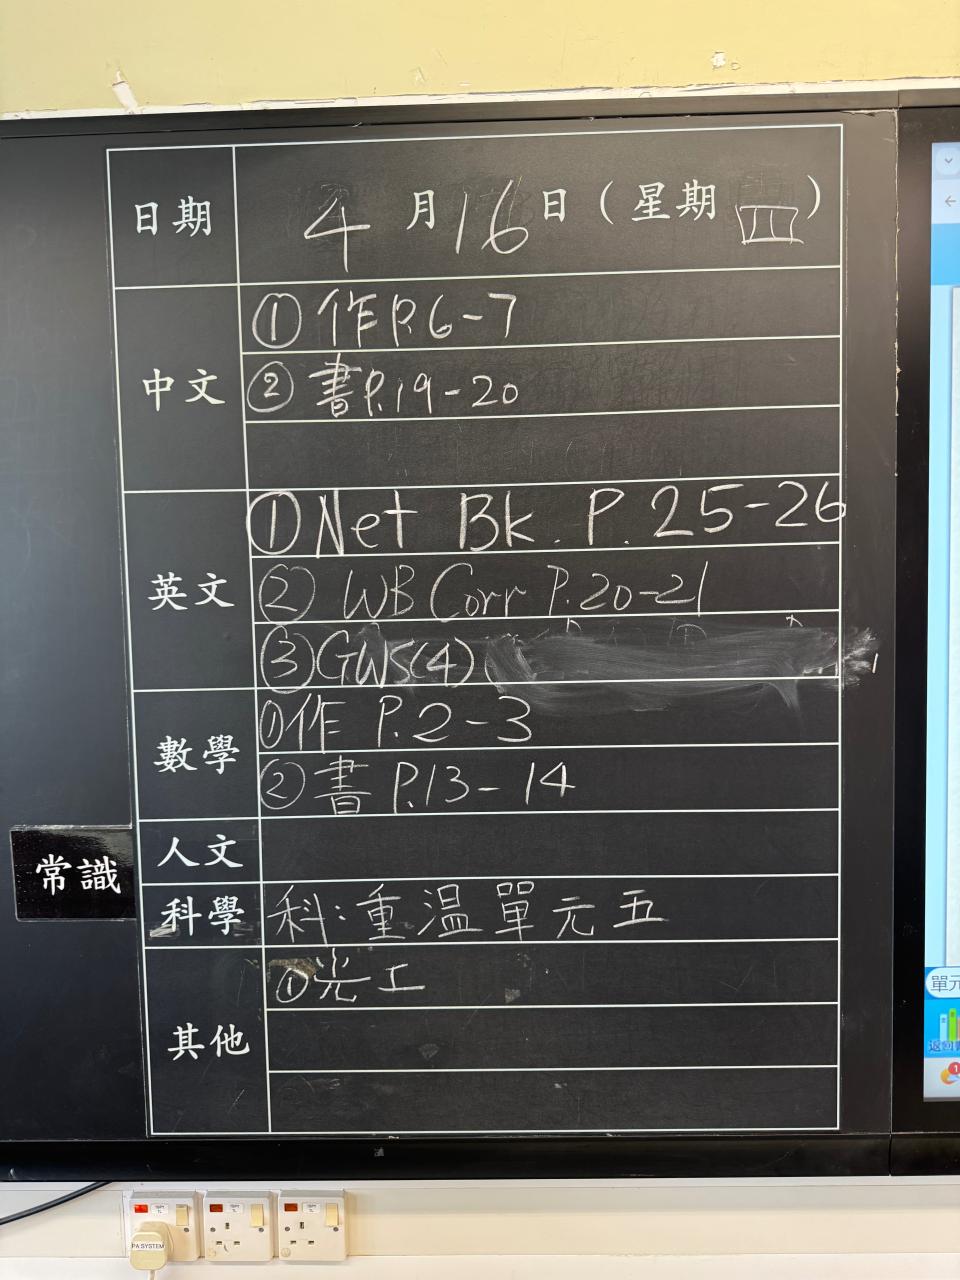 日期 4月16日（星期四）
中文
① 作P.6-7
② 書P.19-20
英文
① Net Bk. P. 25-26
② WB Corr P.20-21
③ GWS(4)
數學
① 作 P.2-3
② 書 P.13-14
人文
常識
科學
科：重溫單元五
其他
① 光工
單元
返回
1
PA SYSTEM